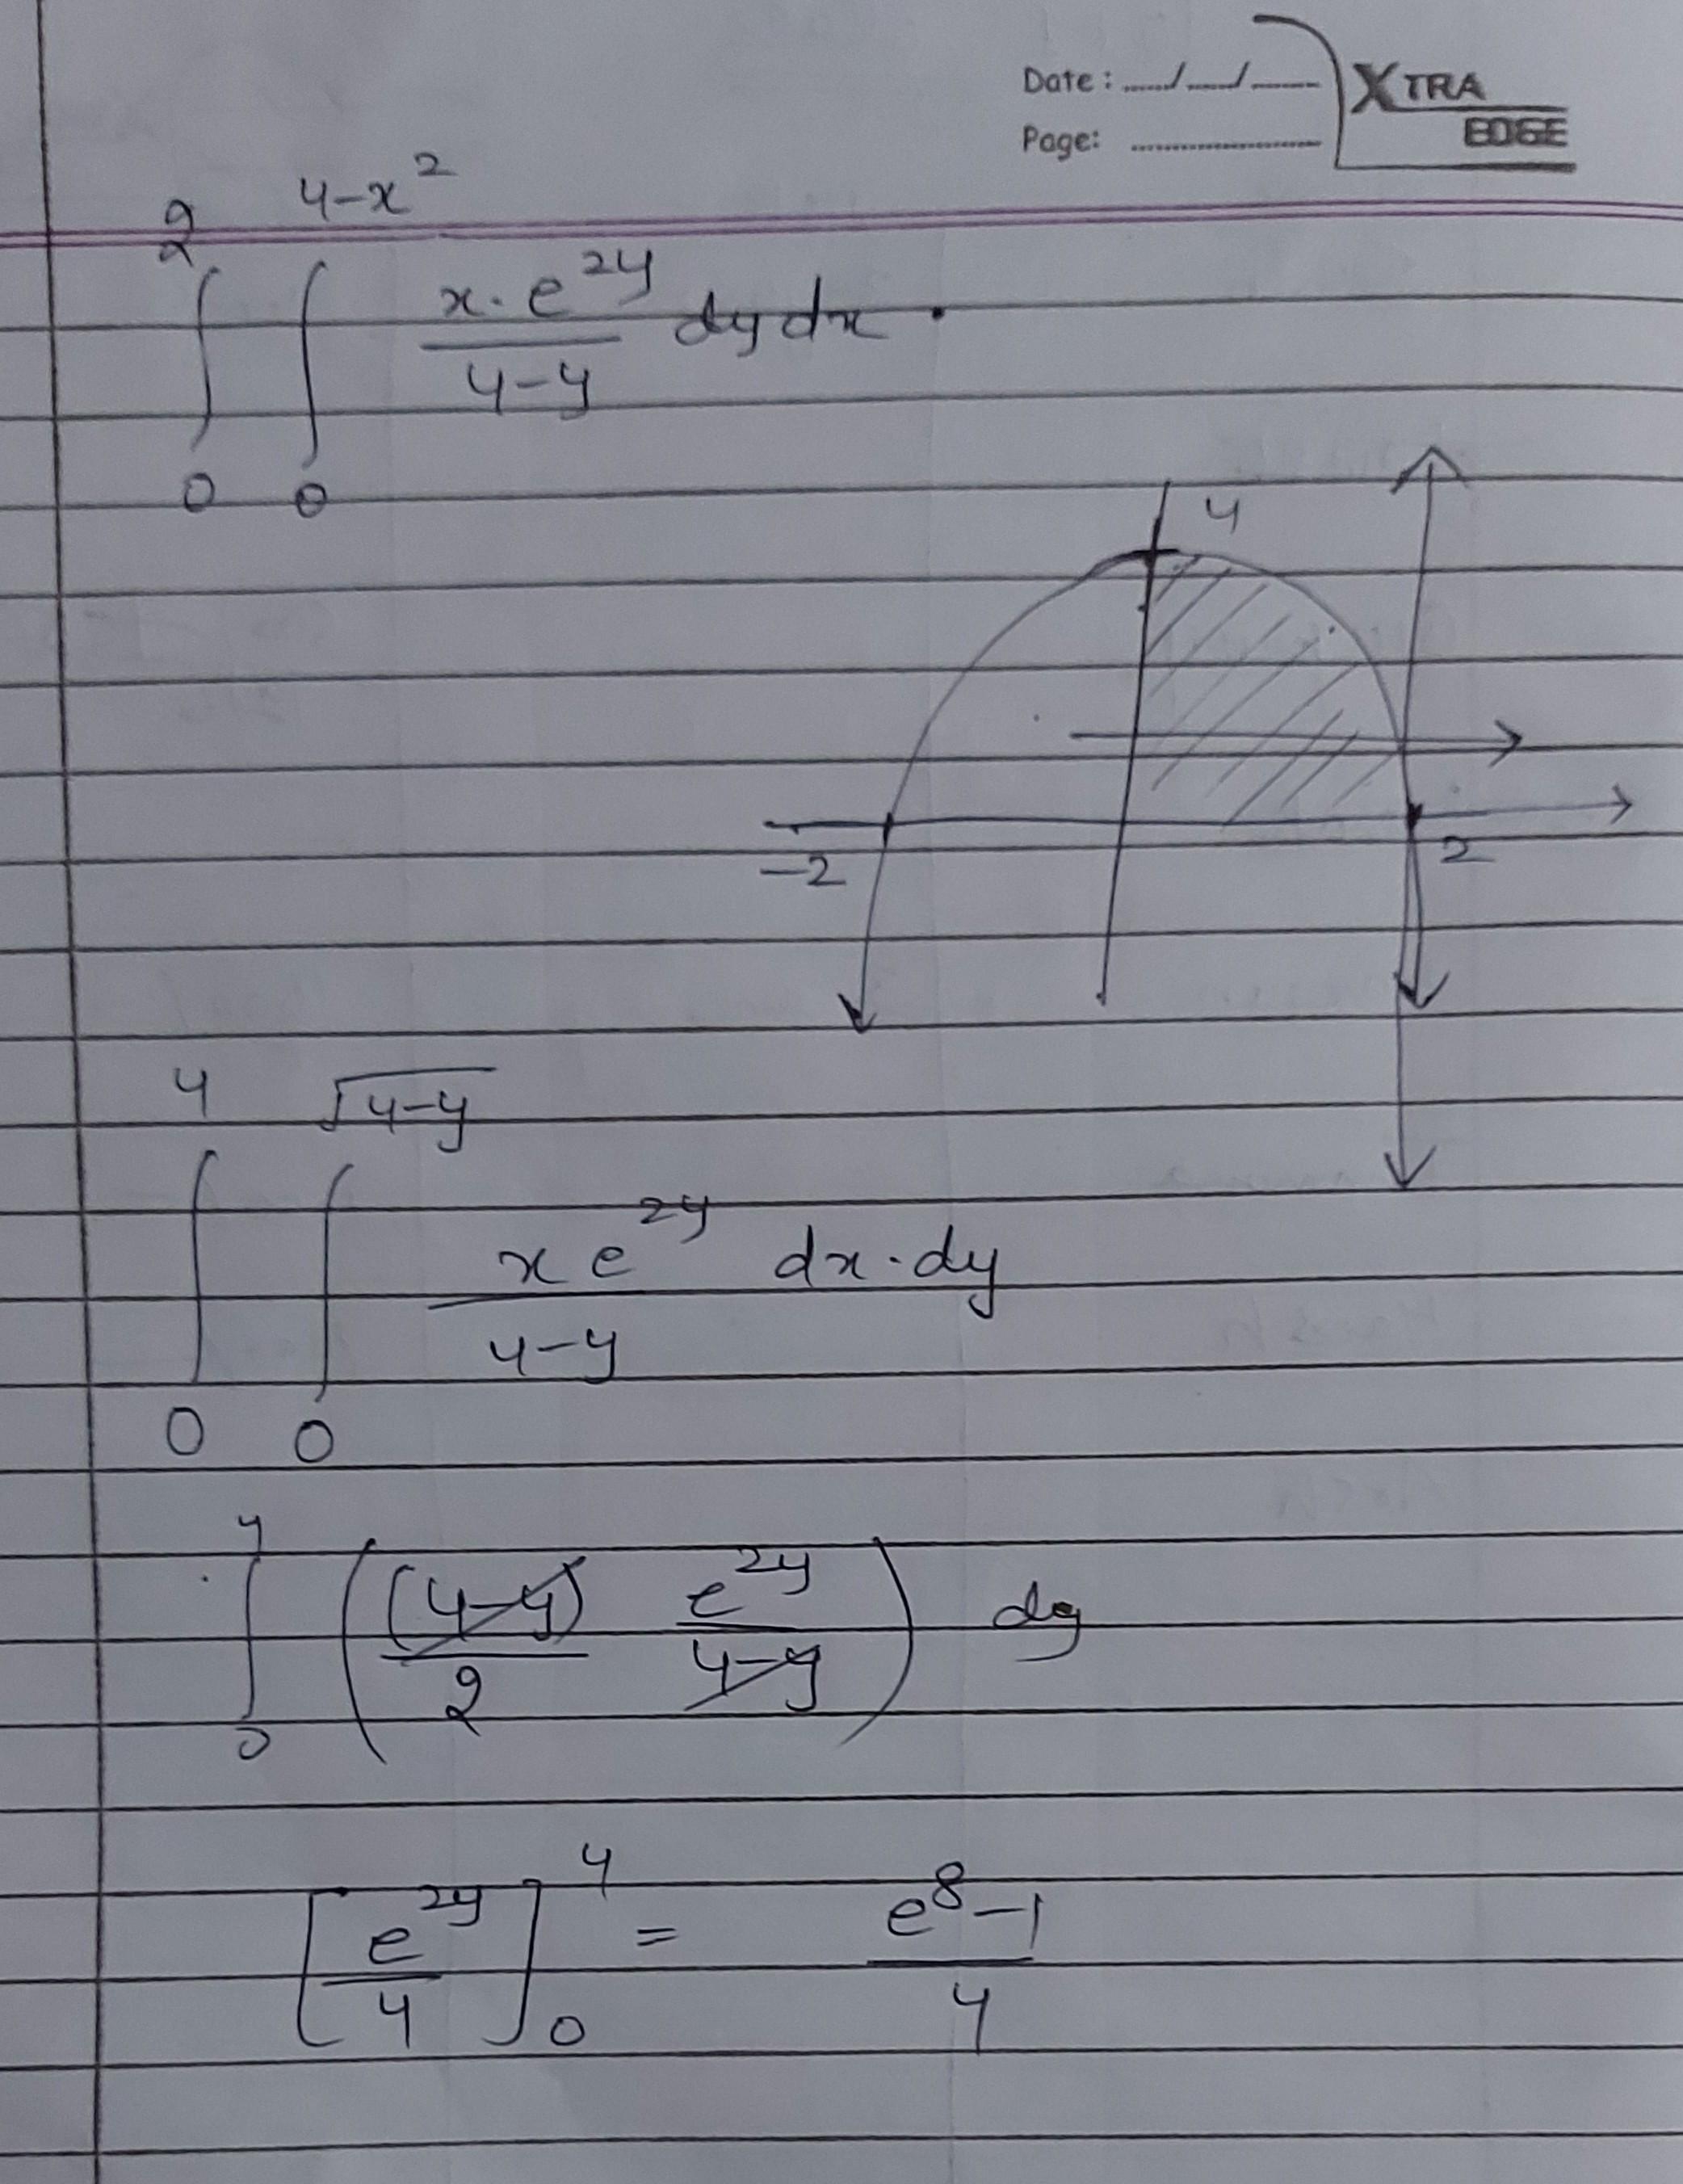 Date: ..../..../....
Page: ....
XTRA
EDGE
∫₀² ∫₀^(4-x²) (x·e^(2y))/(4-y) dy dx.
4
-2 2
∫₀⁴ ∫₀^(√(4-y)) (x e^(2y))/(4-y) dx·dy
∫₀⁴ ( (4-y)/2 e^(2y)/(4-y) ) dy
[ e^(2y)/4 ]₀⁴ = (e⁸-1)/4